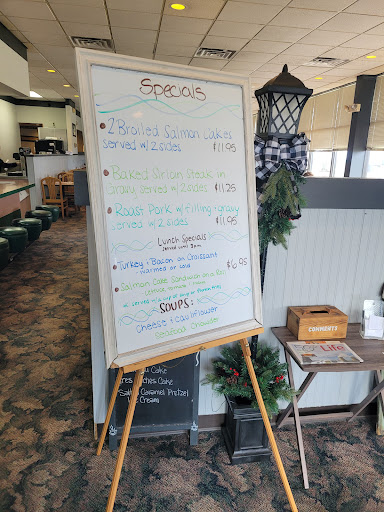 Specials
2 Broiled Salmon Cakes
served w/ 2 sides $11.95
Baked Sirloin Steak in
Gravy served w/ 2 sides $11.25
Roast Pork w/ filling & gravy
served w/ 2 sides $11.95
Lunch Specials
Turkey & Bacon on Croissant
warmed or cold
$6.95
Salmon Cake Sandwich on a Roll
SOUPS:
Cheese & Cauliflower
Seafood Chowder
Cake
Cake
Caramel Pretzel
Ice Cream
COMMENTS
Life